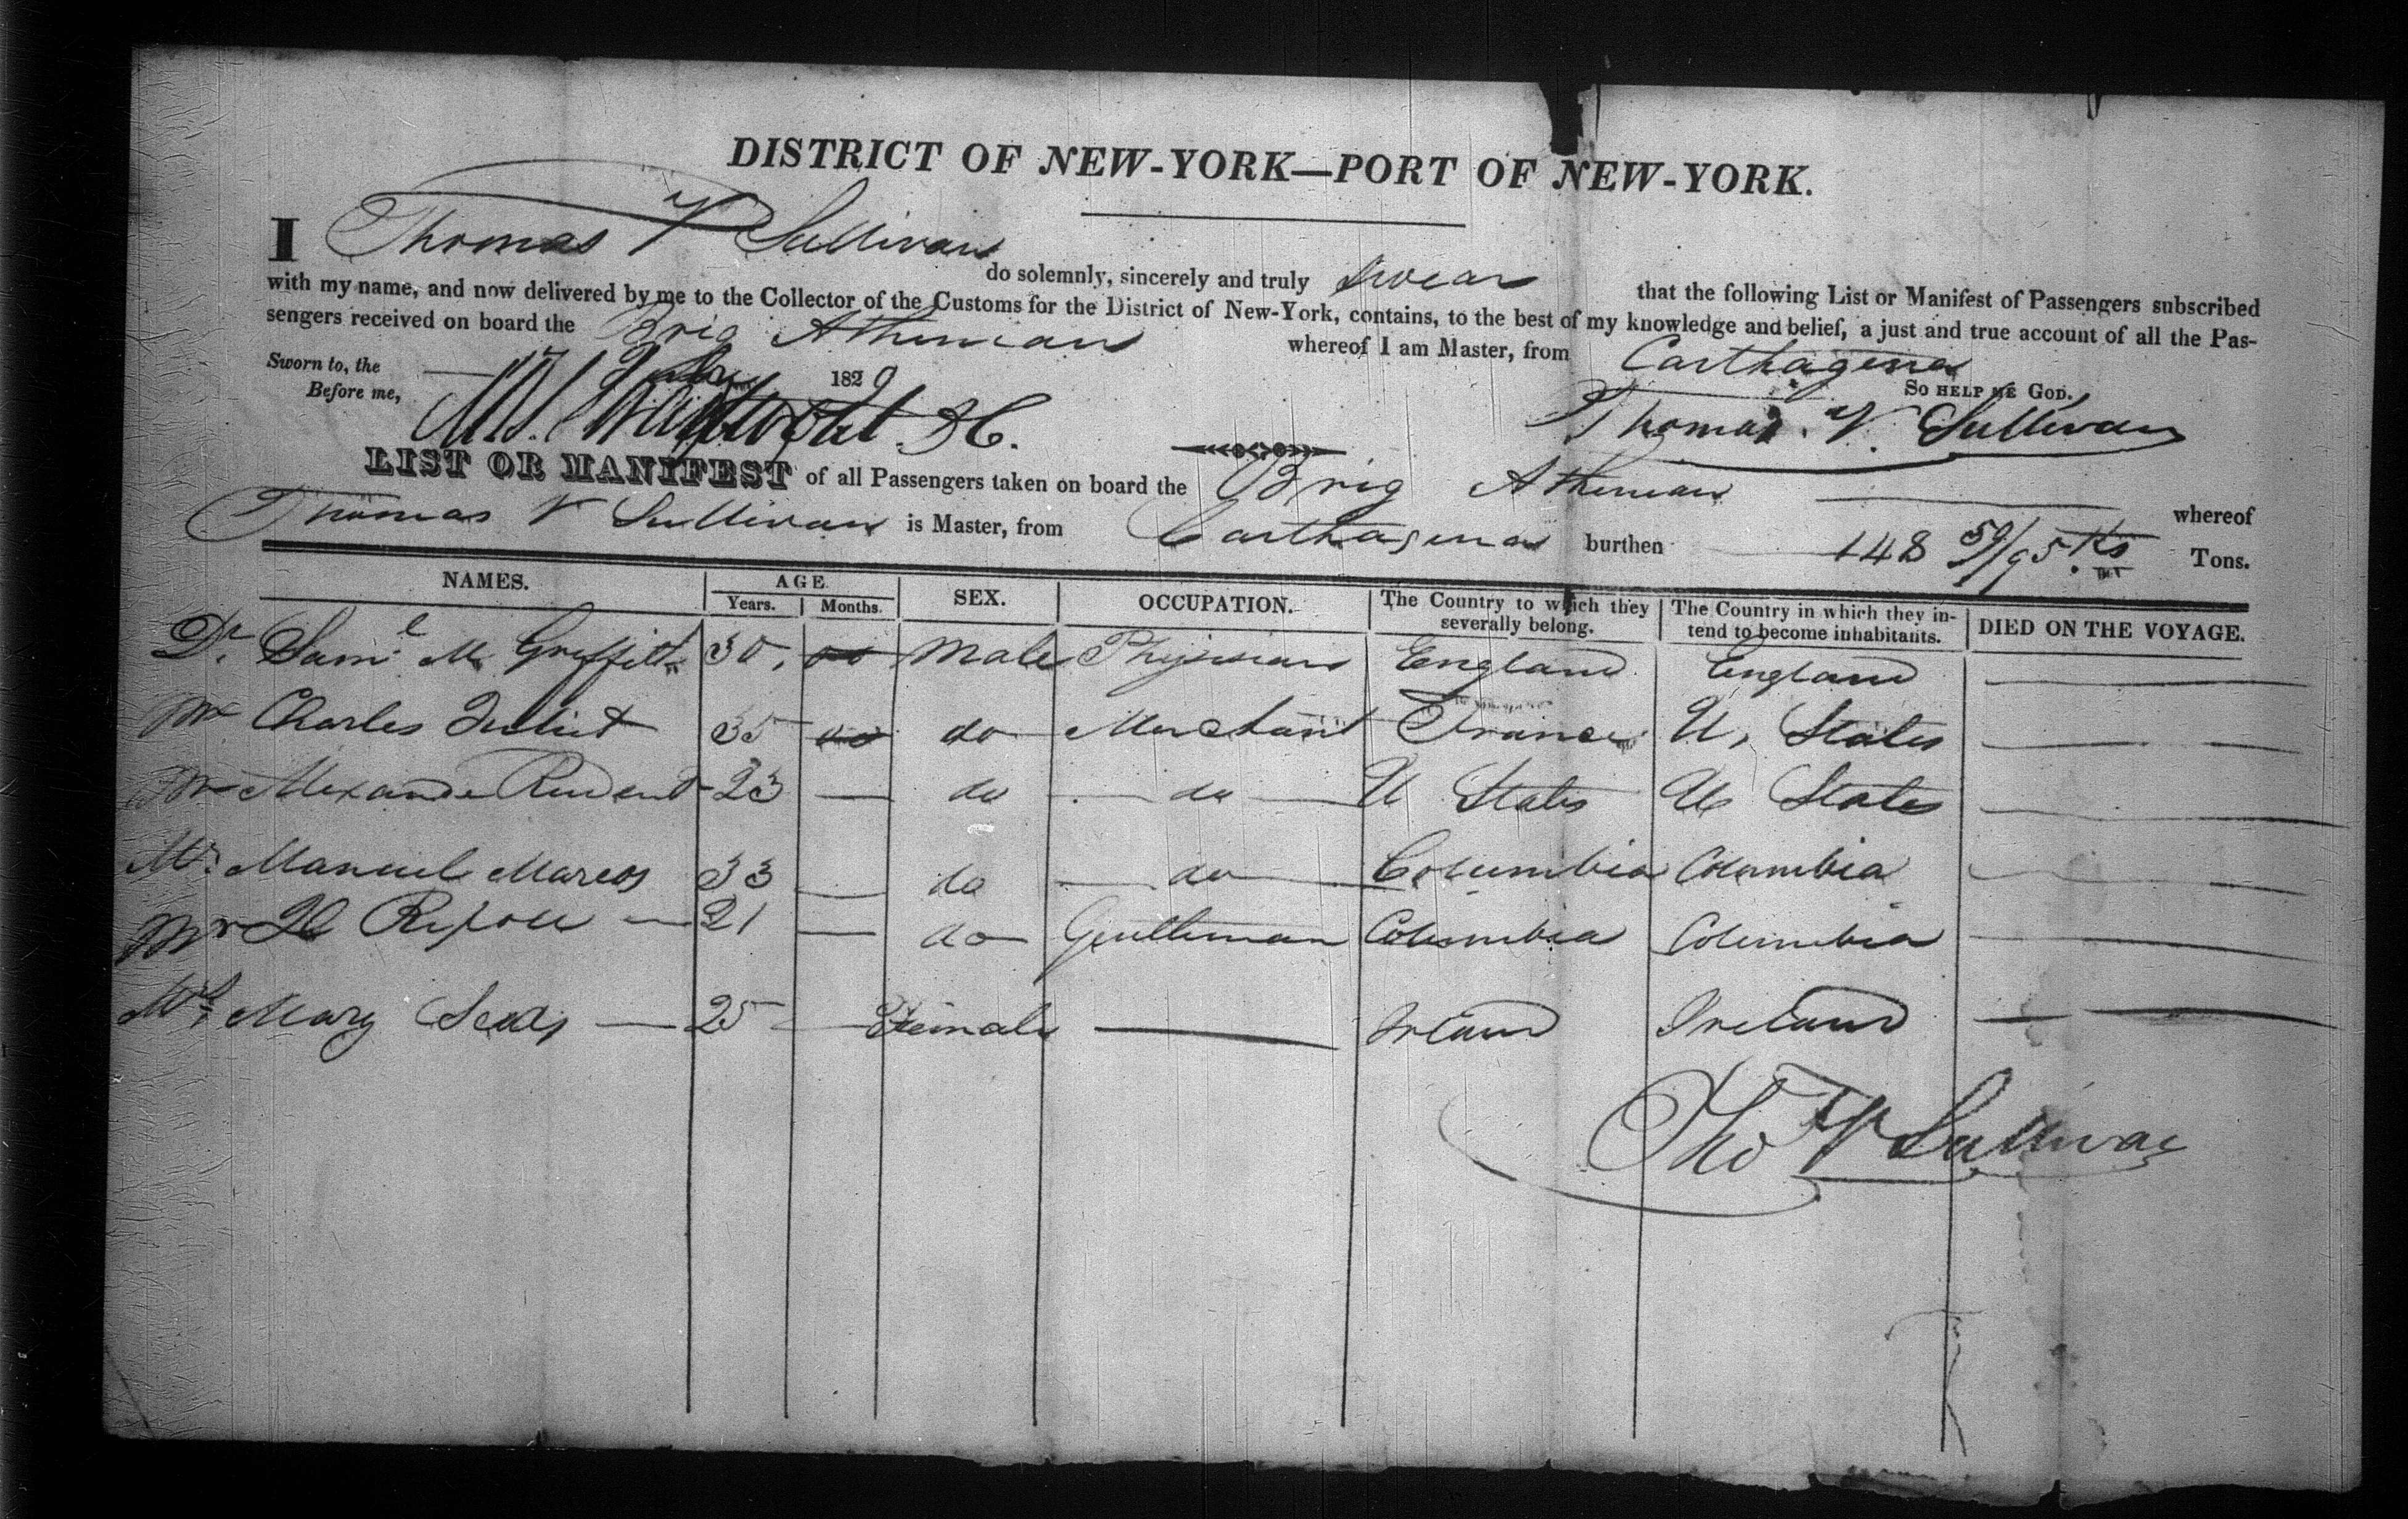 DISTRICT OF NEW-YORK—PORT OF NEW-YORK.
I Thomas V Sullivan do solemnly, sincerely and truly swear that the following List or Manifest of Passengers subscribed
with my name, and now delivered by me to the Collector of the Customs for the District of New-York, contains, to the best of my knowledge and belief, a just and true account of all the Pas-
sengers received on board the Brig Athenian whereof I am Master, from Carthagena
Sworn to, the 1829 So HELP ME GOD.
Before me, Thomas. V. Sullivan
LIST OR MANIFEST of all Passengers taken on board the Brig Athenian whereof
Thomas V Sullivan is Master, from Carthagena burthen 148 59/95 Tons.
NAMES. AGE Years. Months. SEX. OCCUPATION. The Country to which they severally belong. The Country in which they in-tend to become inhabitants. DIED ON THE VOYAGE.
Dr. Saml M Griffith 30, Male Physician England England
Mr Charles 35 do Merchant France U, States
Mr Alexander 23 — do — do — U States U States
Mr. Manuel Marcos 33 — do — do — Columbia Columbia
Mr — 21 — do Gentleman Columbia Columbia
Mrs Mary — 25 — Female — Irland Ireland
Tho V Sullivan